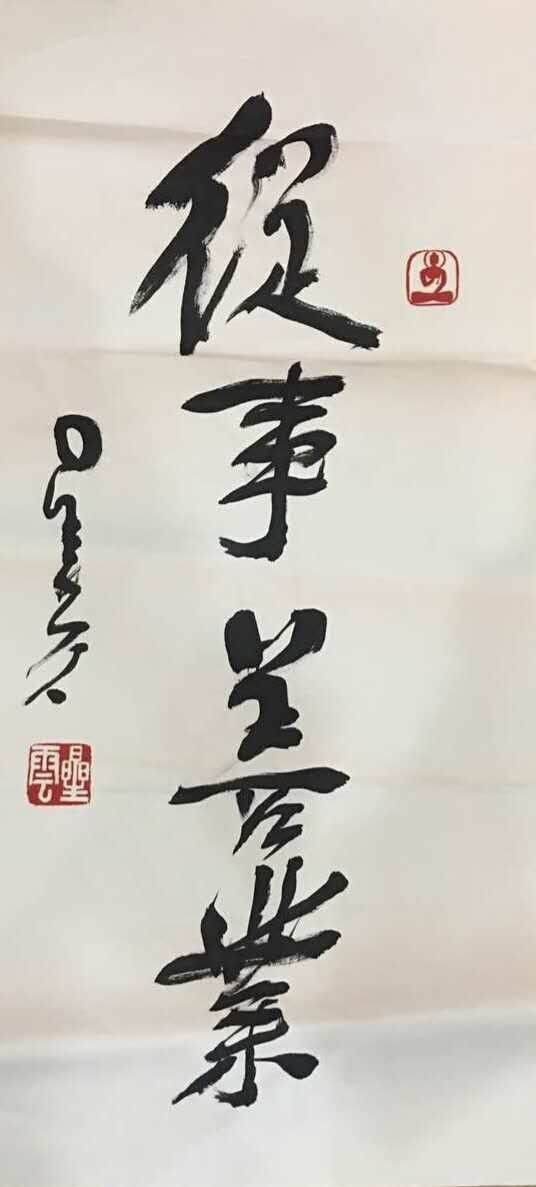 從事善業
星雲
星雲